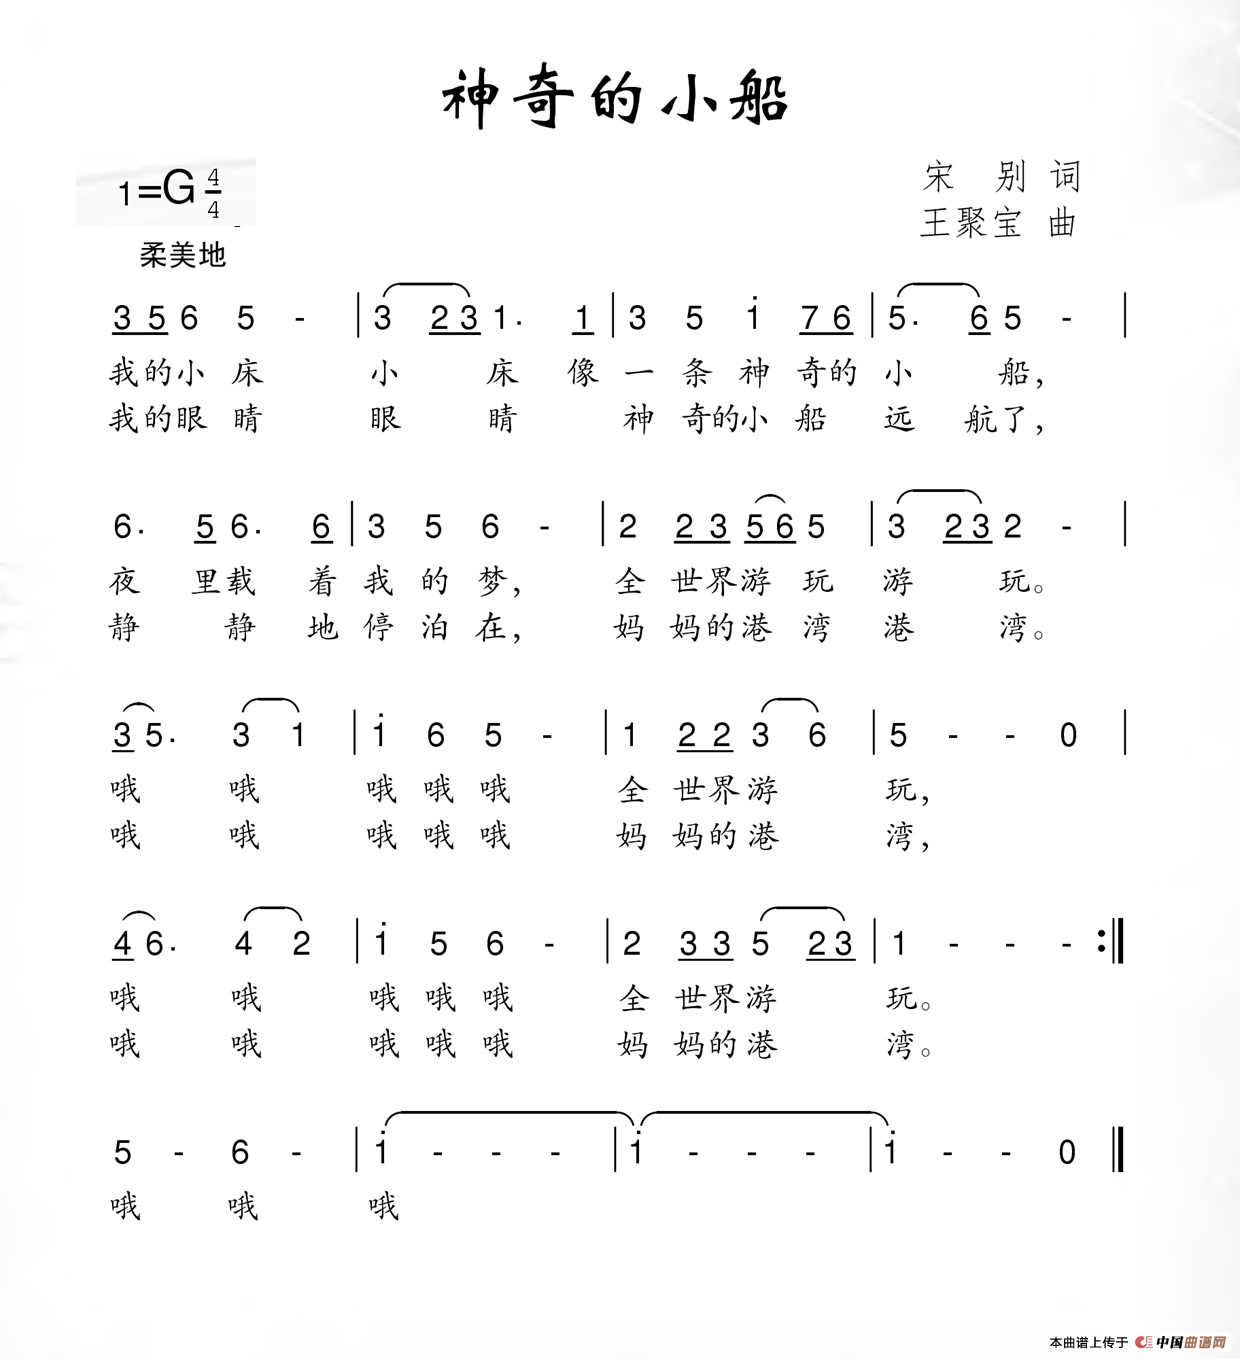 神奇的小船
1=G 4/4
宋 别 词
王聚宝 曲
柔美地
3 5 6 5 - | 3 2 3 1. 1 | 3 5 i 7 6 | 5. 6 5 - |
我的小床 小 床 像一条神奇的小 船,
我的眼睛 眼 睛 神奇的小船远 航了,
6. 5 6. 6 | 3 5 6 - | 2 2 3 5 6 5 | 3 2 3 2 - |
夜 里载 着我的梦, 全世界游玩游 玩。
静 静 地停泊在, 妈妈的港湾港 湾。
3 5. 3 1 | i 6 5 - | 1 2 2 3 6 | 5 - - 0 |
哦 哦 哦哦哦 全世界游 玩,
哦 哦 哦哦哦 妈妈的港 湾,
4 6. 4 2 | i 5 6 - | 2 3 3 5 2 3 | 1 - - - :|
哦 哦 哦哦哦 全世界游 玩。
哦 哦 哦哦哦 妈妈的港 湾。
5 - 6 - | i - - - | i - - - | i - - 0 ‖
哦 哦 哦
本曲谱上传于 中国曲谱网